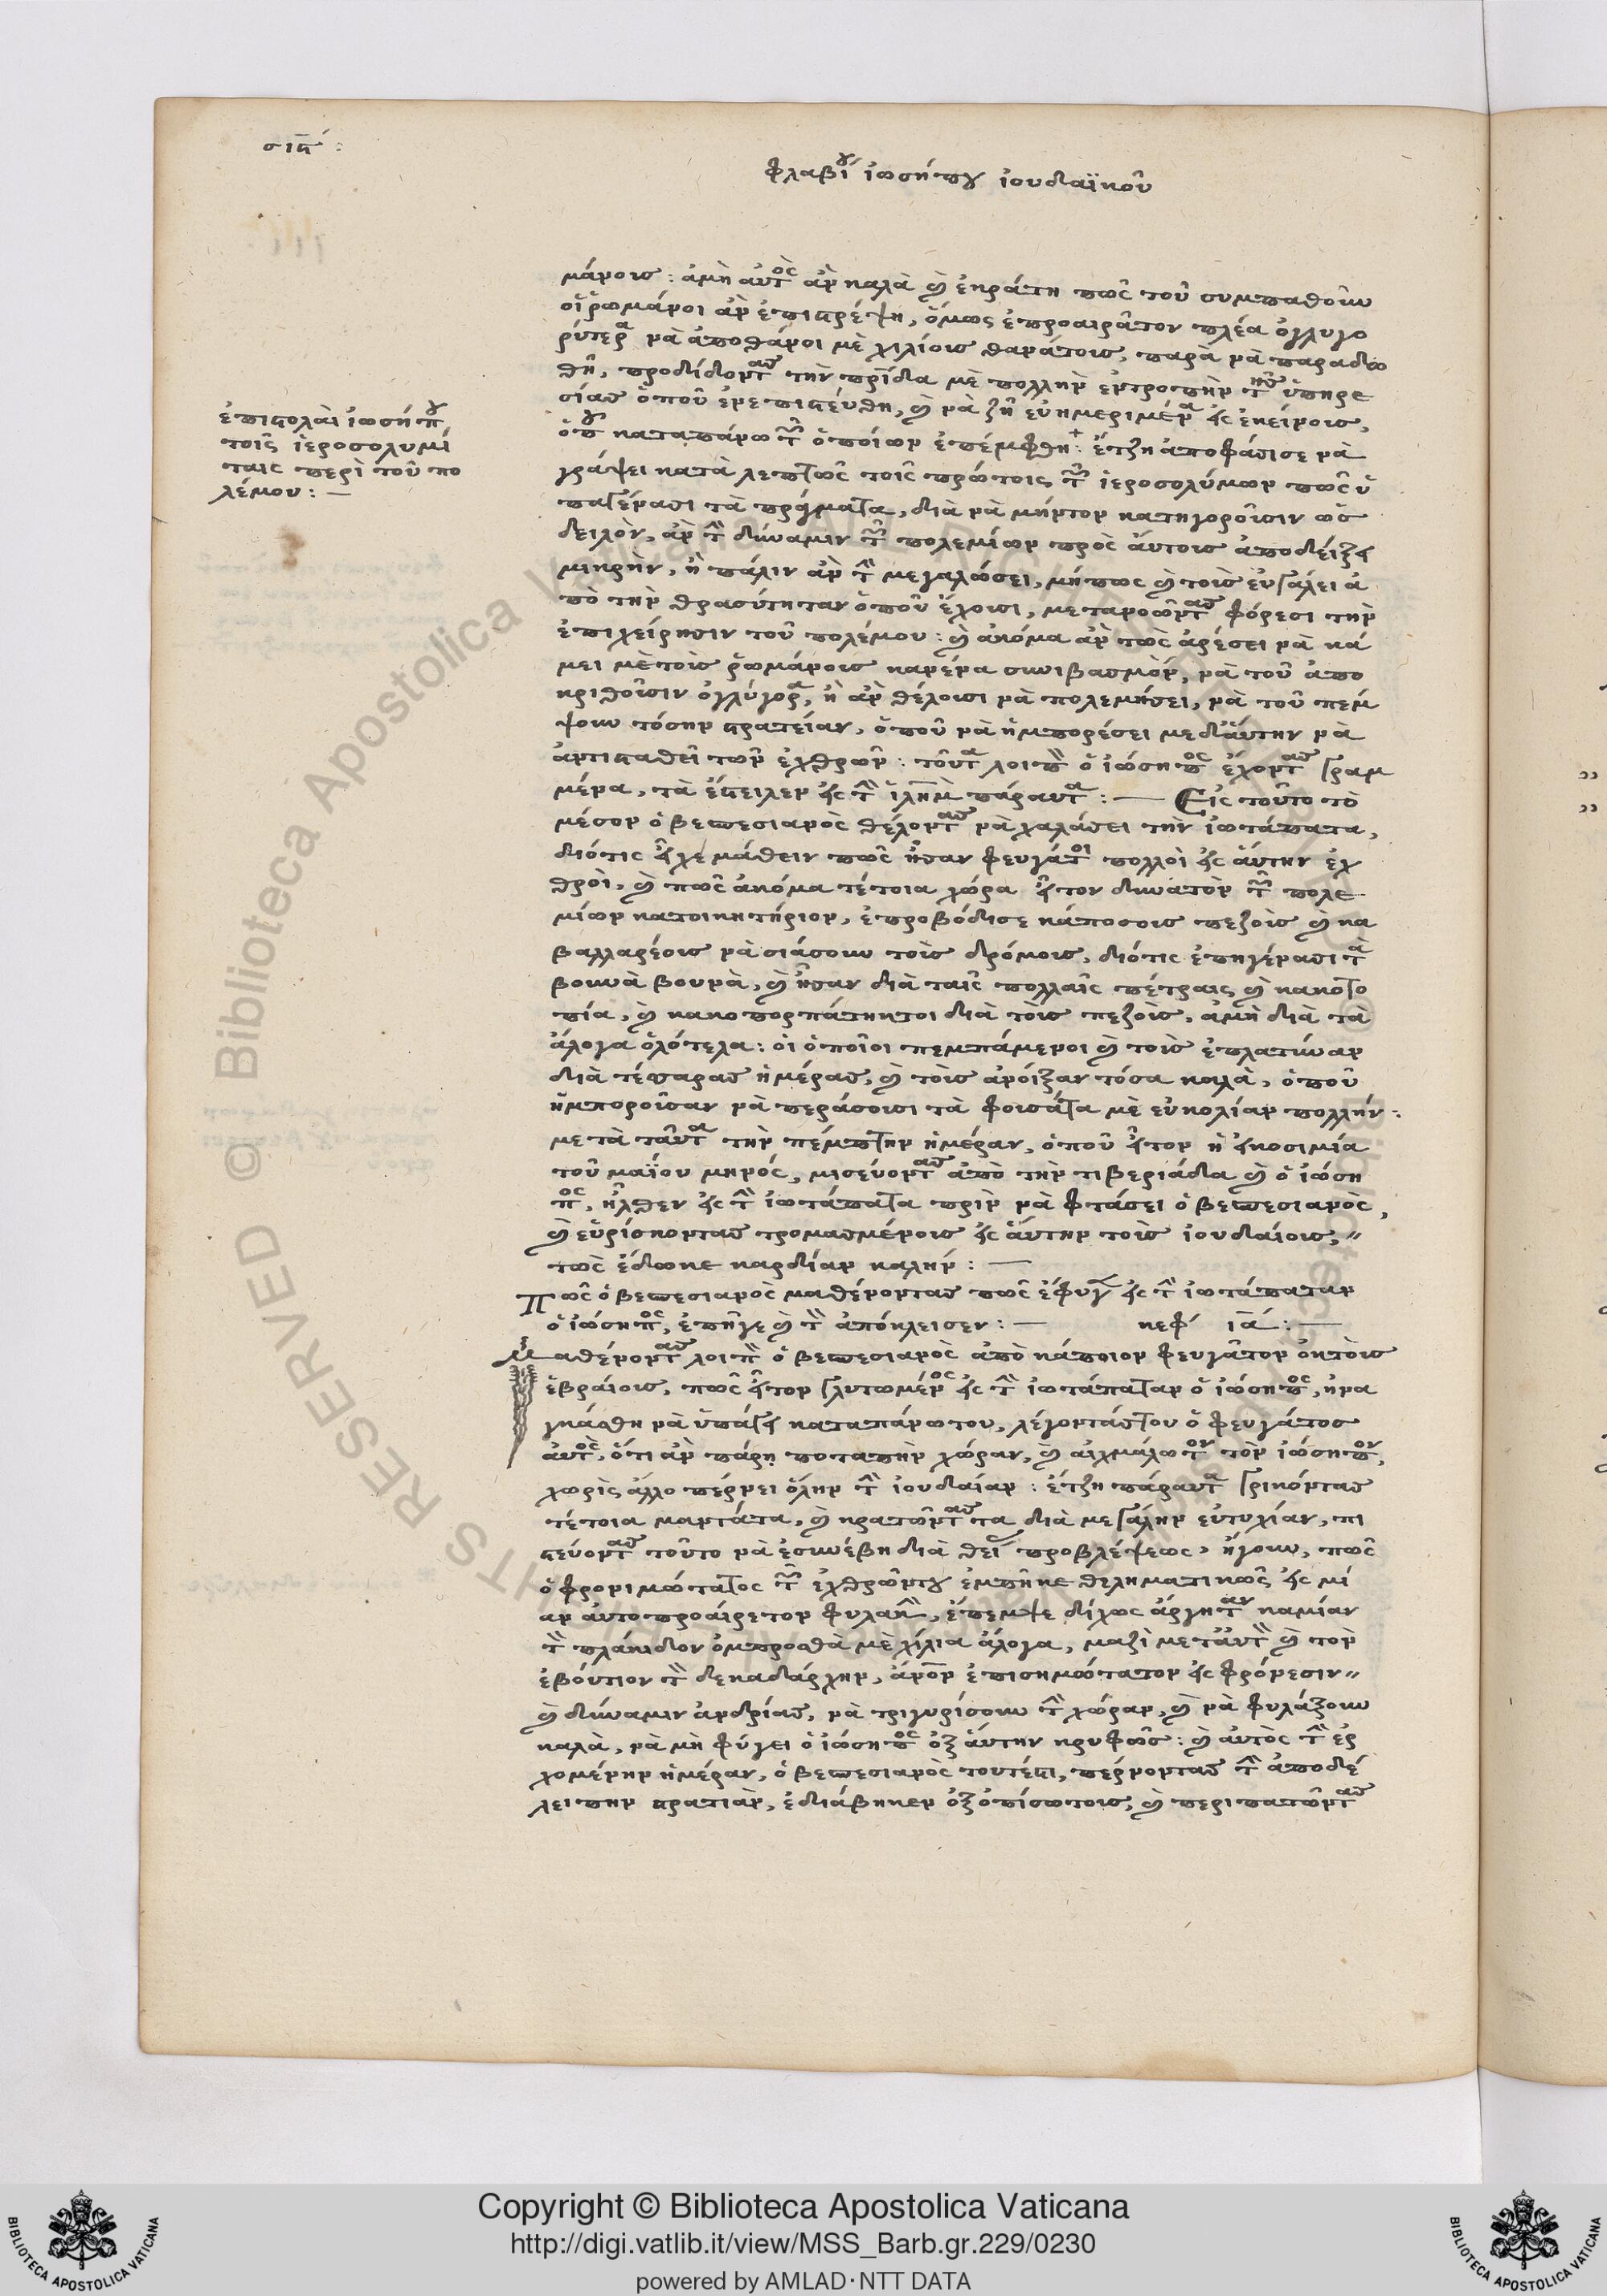 σιη΄ :
φλαβίου ἰωσήπου ἰουδαϊκοῦ
μάνοις : ἀμὴ αὐτὸς ἂν καλὰ καὶ ἐκράτη πῶς τοῦ συμπαθοῦν
οἱ ῥωμάνοι ἂν ἐπιστρέψη, ὅμως ἐπροαιρᾶτον πλέα ὀγλυγο
ρύτερα νὰ ἀποθάνοι μὲ χιλίοις θανάτοις, παρὰ νὰ παραδω
θῆ, προδίδοντας τὴν πρῖδα μὲ πολλὴν ἐντροπὴν τῆς ὑπηρε
σίας ὁποῦ ἐνεπιστεύθη, καὶ νὰ ζῆ εὐημεριμένα εἰς ἐκείνοις,
ὁποῦ καταπάνω τῶν ὁποίων ἐπέμφθη : ἔτζη ἀποφάσισε νὰ
ἐπιστολαὶ ἰωσήπου
τοῖς ἱεροσολυμί
ταις περὶ τοῦ πο
λέμου : —
γράψει κατὰ λεπτῶς τοῖς πρώτοις τῶν ἱεροσολύμων πῶς ὑ
παγένασι τὰ πράγματα, διὰ νὰ μήντον κατηγοροῦσιν ὡς
δειλὸν, ἂν τὴν δύναμιν τῶν πολεμίων πρὸς αὐτοὺς ἀποδείξει
μικρὴν, ἢ πάλιν ἂν τὴν μεγαλώσει, μήπως καὶ τοὺς εὐγάλει ἀ
πὸ τὴν θρασύτηταν ὁποῦ ἔχοισι, μετανοῶντας φόρεσι τὴν
ἐπιχείρησιν τοῦ πολέμου : καὶ ἀκόμα ἂν τῶς ἀρέσει νὰ κά
μει μὲ τοὺς ῥωμάνοις κανένα συνιβασμὸν, νὰ τοῦ ἀπο
κριθοῦσιν ὀγλύγορα, ἢ ἂν θέλοισι νὰ πολεμήσει, νὰ τοῦ πέμ
ψουν τόσην στρατείαν, ὁποῦ νὰ ἠμπορέσει μεδαύτην νὰ
ἀντισταθεῖ τῶν ἐχθρῶν : τοῦτα λοιπὸν ὁ ἰώσηπος ἔχοντας γραμ
μένα, τὰ ἔστειλεν εἰς τὴν ἱλῆμ πάραυτα : — Εἰς τοῦτο τὸ
μέσον ὁ βεσπεσιανὸς θέλοντας νὰ χαλάσει τὴν ἰωτάπατα,
διότις εἶχε μάθειν πῶς ἦσαν φευγάτοι πολλοὶ εἰς αὐτὴν ἐχ
θροὶ, καὶ πῶς ἀκόμα τέτοια χώρα εἶτον δυνατὸν τῶν πολε
μίων κατοικητήριον, ἐπροβόδισε κάποσοις πεζοὶς καὶ κα
βαλλαρέοις νὰ σιάσουν τοὶς δρόμοις, διότις ἐπηγένασι τὰ
βουνὰ βουνὰ, καὶ ἦσαν διὰ ταῖς πολλαῖς πέτραις καὶ κακοτο
πία, καὶ κακοπορπάτηκτοι διὰ τοὶς πεζοὶς, ἀμὴ διὰ τὰ
ἄλογα ὁλότελα : οἱ ὁποῖοι πεμπάμενοι καὶ τοὶς ἐπλατύναν
διὰ τέσσαρας ἡμέρας, καὶ τοὶς ἀνοίξαν τόσα καλὰ, ὁποῦ
ἠμποροῦσαν νὰ περάσοισι τὰ φοισάτα μὲ εὐκολίαν πολλήν :
μετὰ ταῦτα τὴν πέμπτην ἡμέραν, ὁποῦ εἶτον ἡ εἰκοσιμία
τοῦ μαΐου μηνός, μισεύοντας ἀπὸ τὴν τιβεριάδα καὶ ὁ ἰώση
πος, ἦλθεν εἰς τὴν ἰωτάπατα πρὶν νὰ φτάσει ὁ βεσπεσιανὸς,
καὶ εὑρίσκοντας τρομασμένοις εἰς αὐτὴν τοὶς ἰουδαίοις,
τῶς ἔδωκε καρδίαν καλήν : —
Πῶς ὁ βεσπεσιανὸς μαθένοντας πῶς ἔφυγε εἰς τὴν ἰωτάπαταν
ὁ ἰώσηπος, ἐπῆγε καὶ τὸν ἀπόκλεισεν : — κεφ΄ ια΄ : —
Μαθένοντας λοιπὸν ὁ βεσπεσιανὸς ἀπὸ κάποιον φευγάτον ὀκτὸις
ἑβραίοις, πῶς εἶτον γλυτωμένος εἰς τὴν ἰωτάπαταν ὁ ἰώσηπος, ἠνα
γκάσθη νὰ ὑπάγει καταπάνωτου, λέγοντάστου ὁ φευγάτος
αὐτὸς, ὅτι ἂν πάρη ποταπὴν χώραν, καὶ αἰχμάλωτον τὸν ἰώσηπον,
χωρὶς ἄλλο πέρνει ὅλην τὴν ἰουδαίαν : ἔτζη πάραυτα γρικόντας
τέτοια μαντάτα, καὶ κρατῶντας τα διὰ μεγάλην εὐτυχίαν, πι
στεύοντας τοῦτο νὰ ἐσυνέβη διὰ θείας προβλέψεως, ἤγουν, πῶς
ὁ φρονιμώτατος τῶν ἐχθρῶντου ἐμπῆκε θεληματικῶς εἰς μί
αν αὐτοπροαίρετον φυλακὴν, ἔπεμψε δίχως ἄργηταν καμίαν
τὸν πλάκιδον ὀμπροσθὰ μὲ χίλια ἄλογα, μαζὶ μεταυτὸν καὶ τὸν
ἐβούτιον τὸν δεκαδάρχην, ἄνον ἐπισημώτατον εἰς φρόνεσιν
καὶ δύναμιν ἀνδρίας, νὰ τριγυρίσουν τὴν χώραν, καὶ νὰ φυλάξουν
καλὰ, νὰ μὴ φύγει ὁ ἰώσηπος ὀξ αὐτὴν κρυφῶς : καὶ αὐτὸς τὴν ἐρ
χομένην ἡμέραν, ὁ βεσπεσιανὸς τουτέστι, πέρνοντας τὴν ἀποδέ
λειπην στρατιὰν, ἐδιάβηκεν ὀξοπίσωτοις, καὶ περιπατῶντας
Copyright © Biblioteca Apostolica Vaticana
http://digi.vatlib.it/view/MSS_Barb.gr.229/0230
powered by AMLAD·NTT DATA